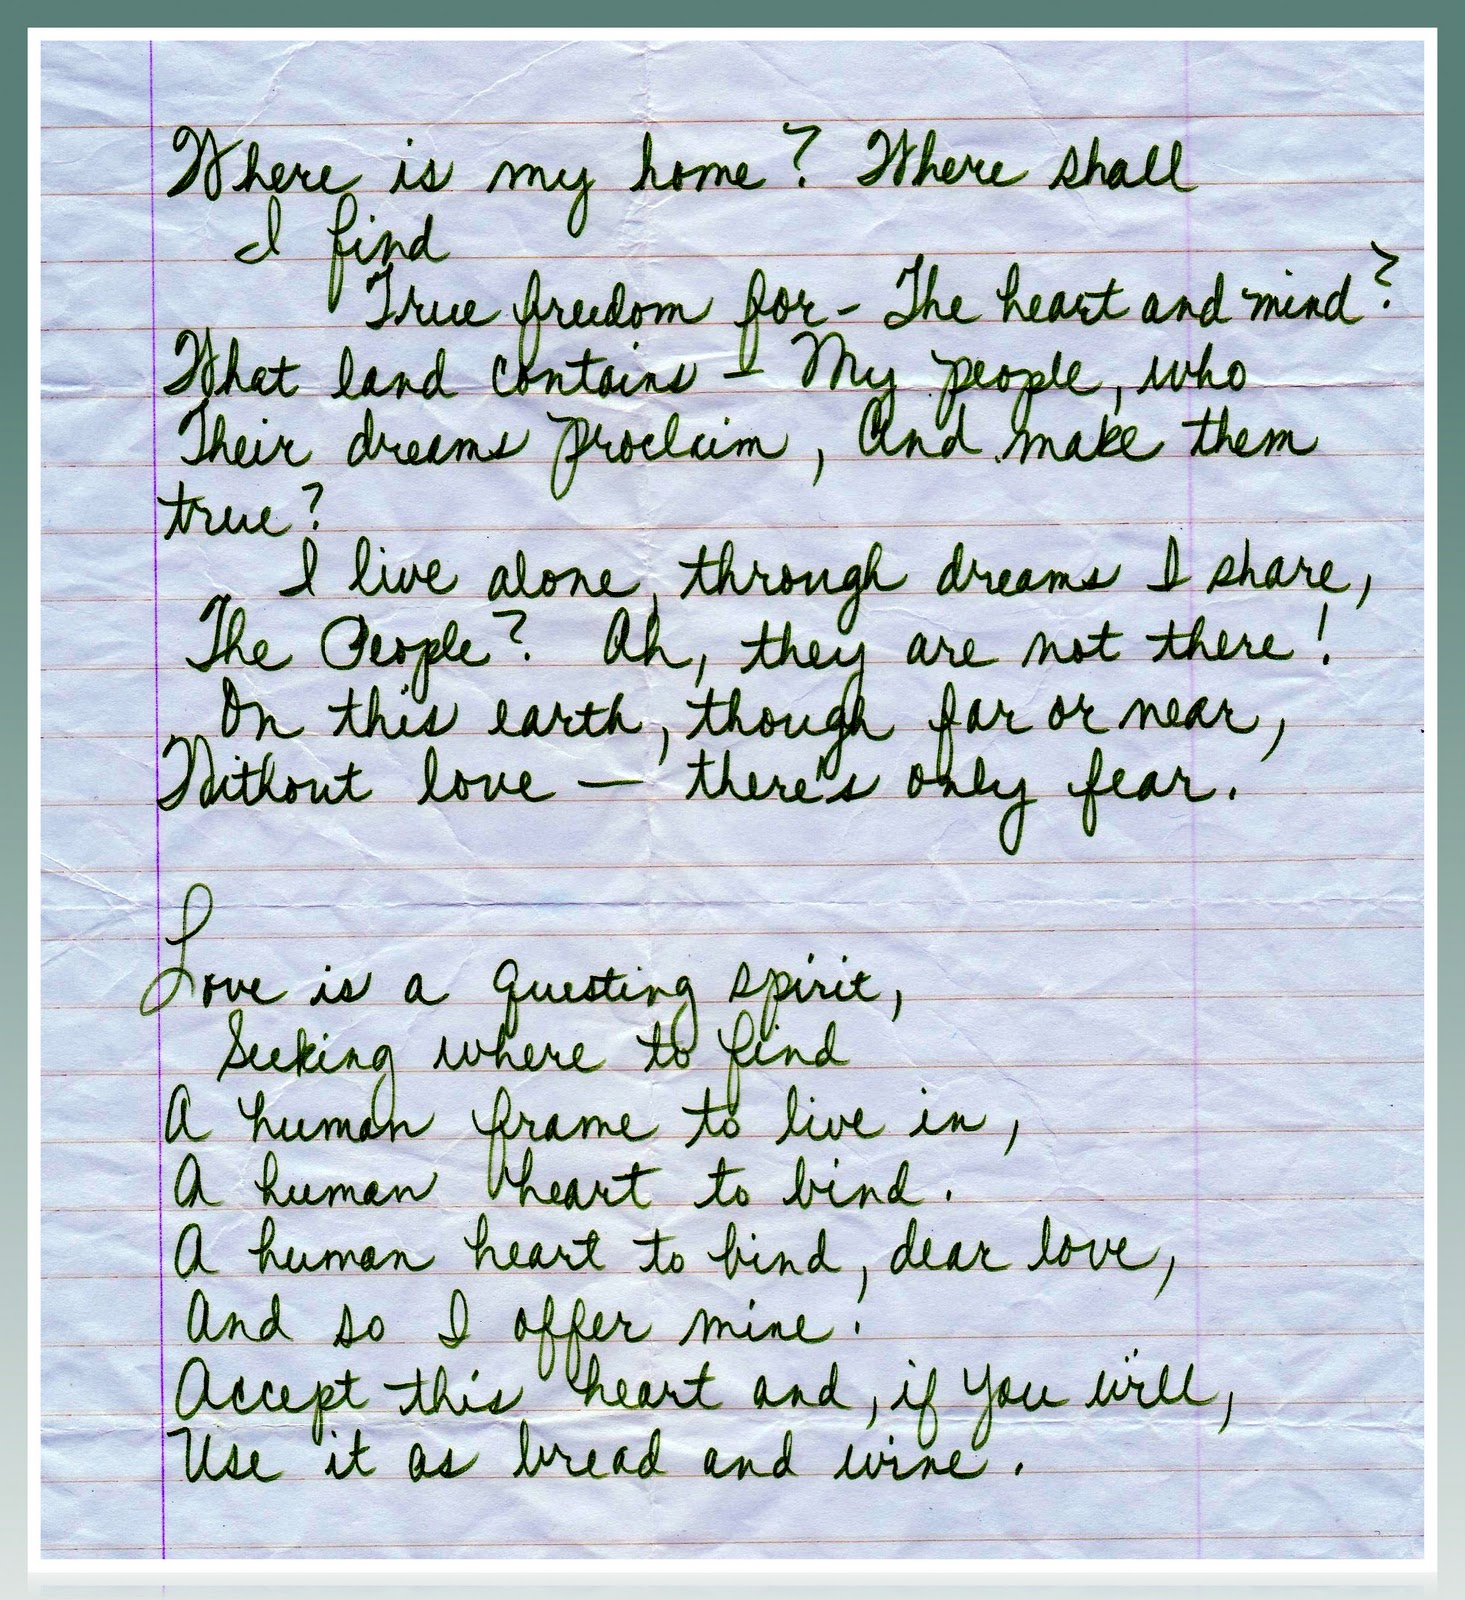 Where is my home? Where shall
I find
True freedom for - The heart and mind?
What land contains - My people, who
Their dreams proclaim, And make them
true?
I live alone, through dreams I share,
The People? Ah, they are not there!
On this earth, though far or near,
Without love — there's only fear.
Love is a questing spirit,
Seeking where to find
A human frame to live in,
A human heart to bind.
A human heart to bind, dear love,
And so I offer mine.
Accept this heart and, if you will,
Use it as bread and wine.